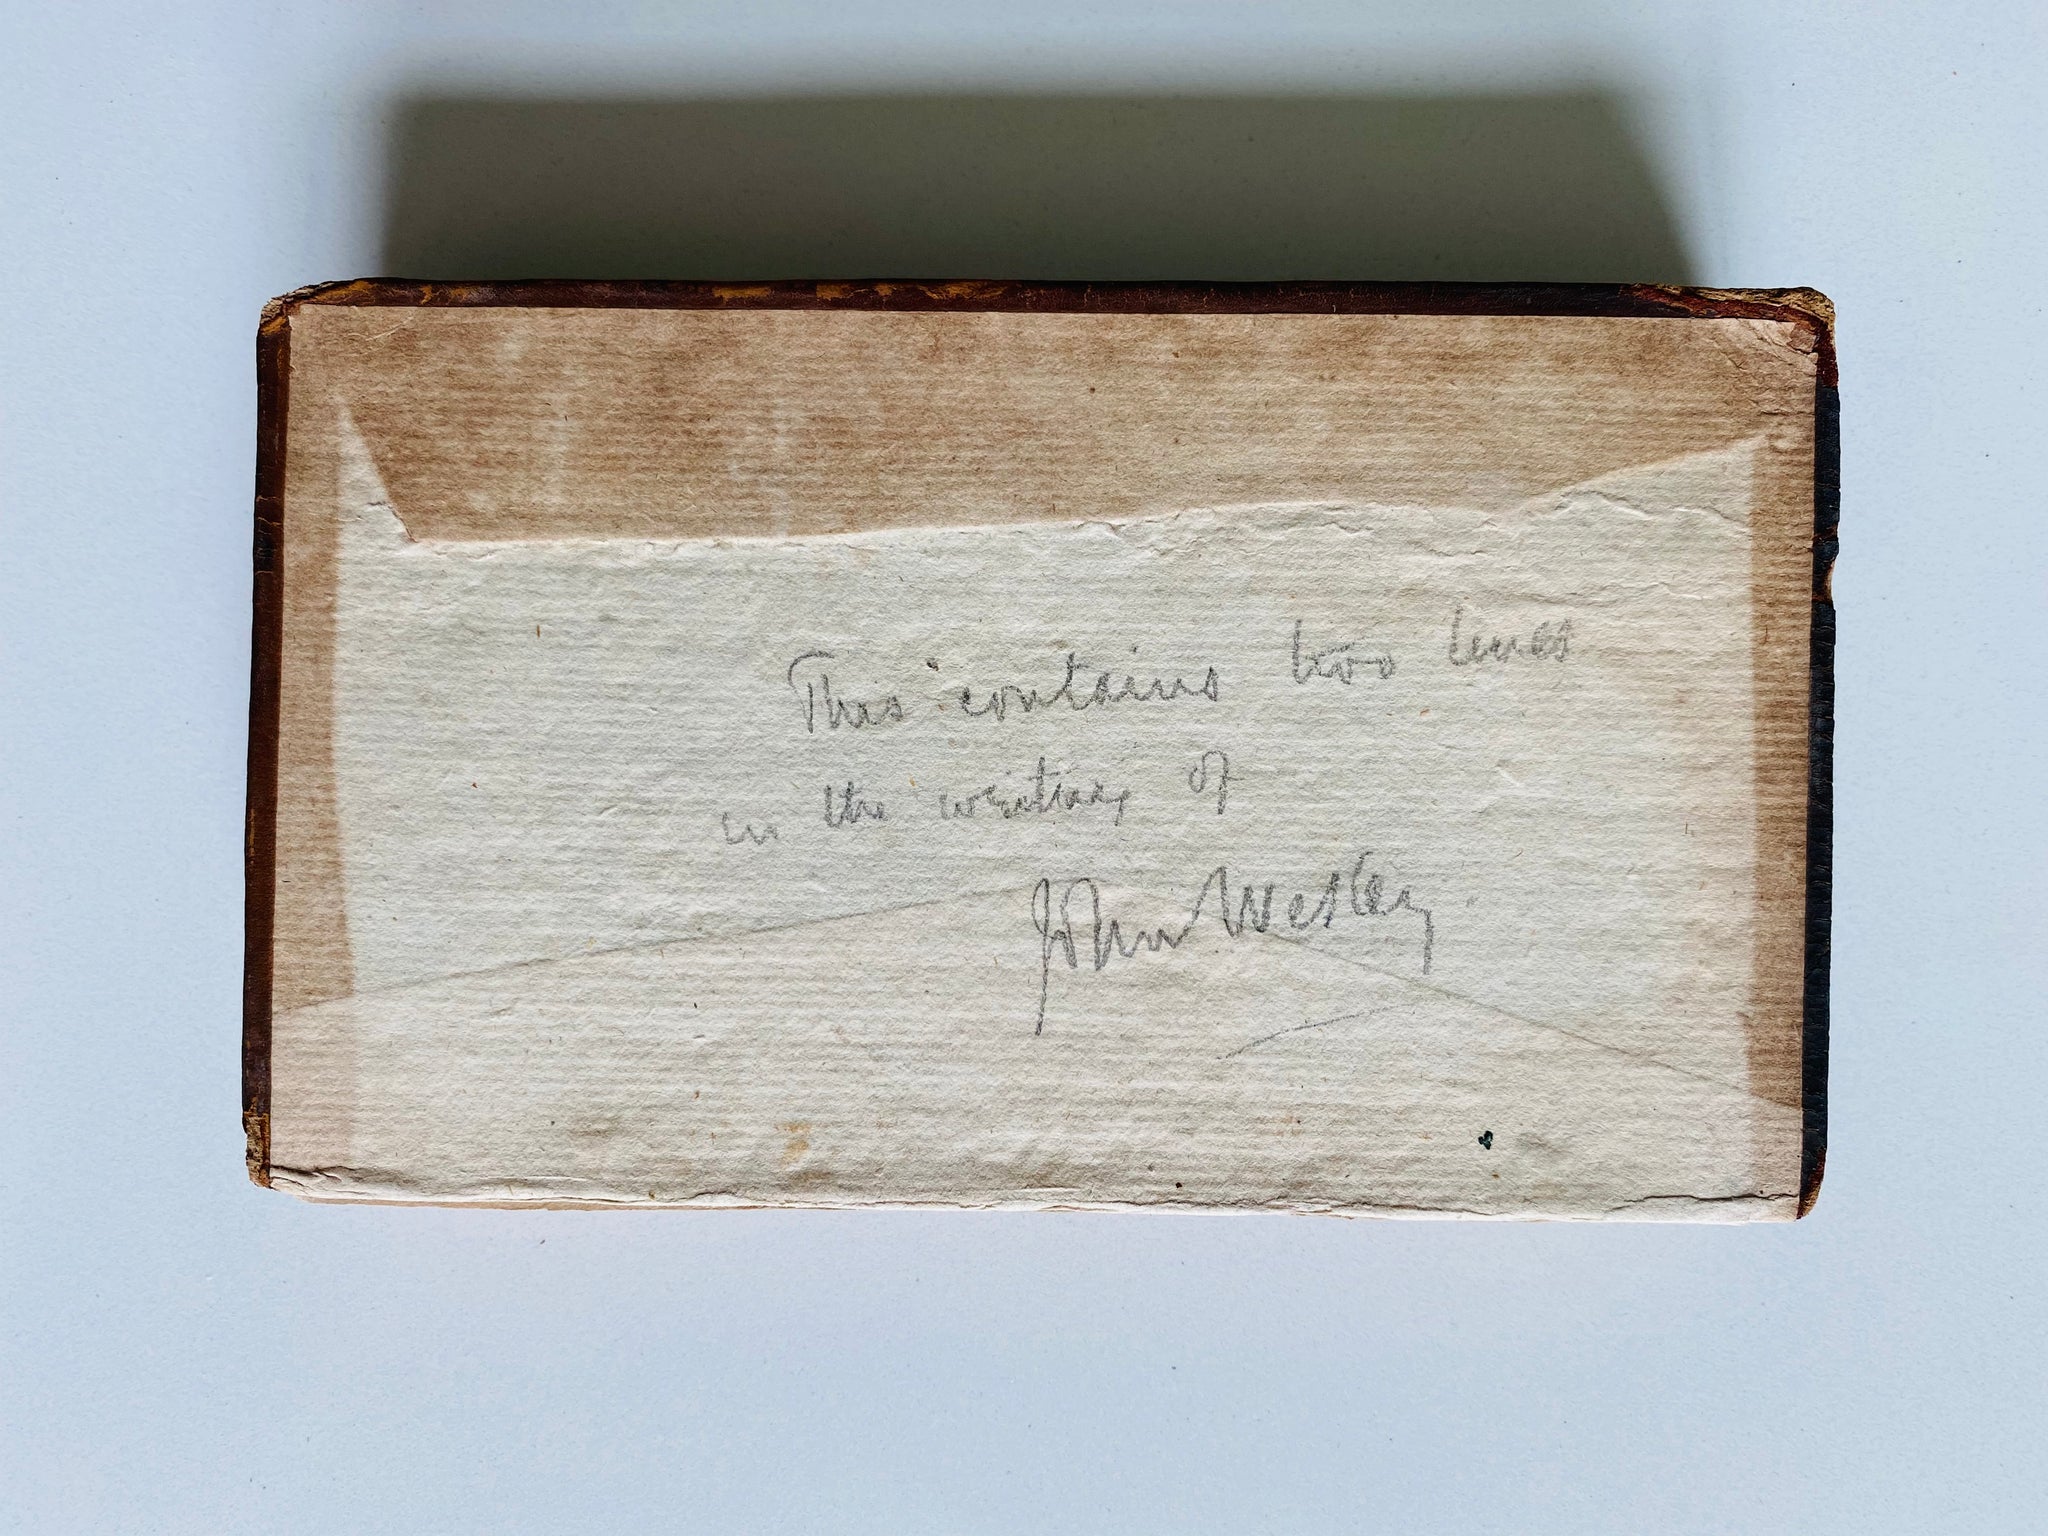 This contains two lines
in the writing of
John Wesley.